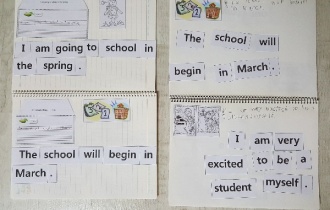 I am going to school in
the spring.
The school will begin in
March.
The school will
begin in March.
I am very
excited to be a
student myself.